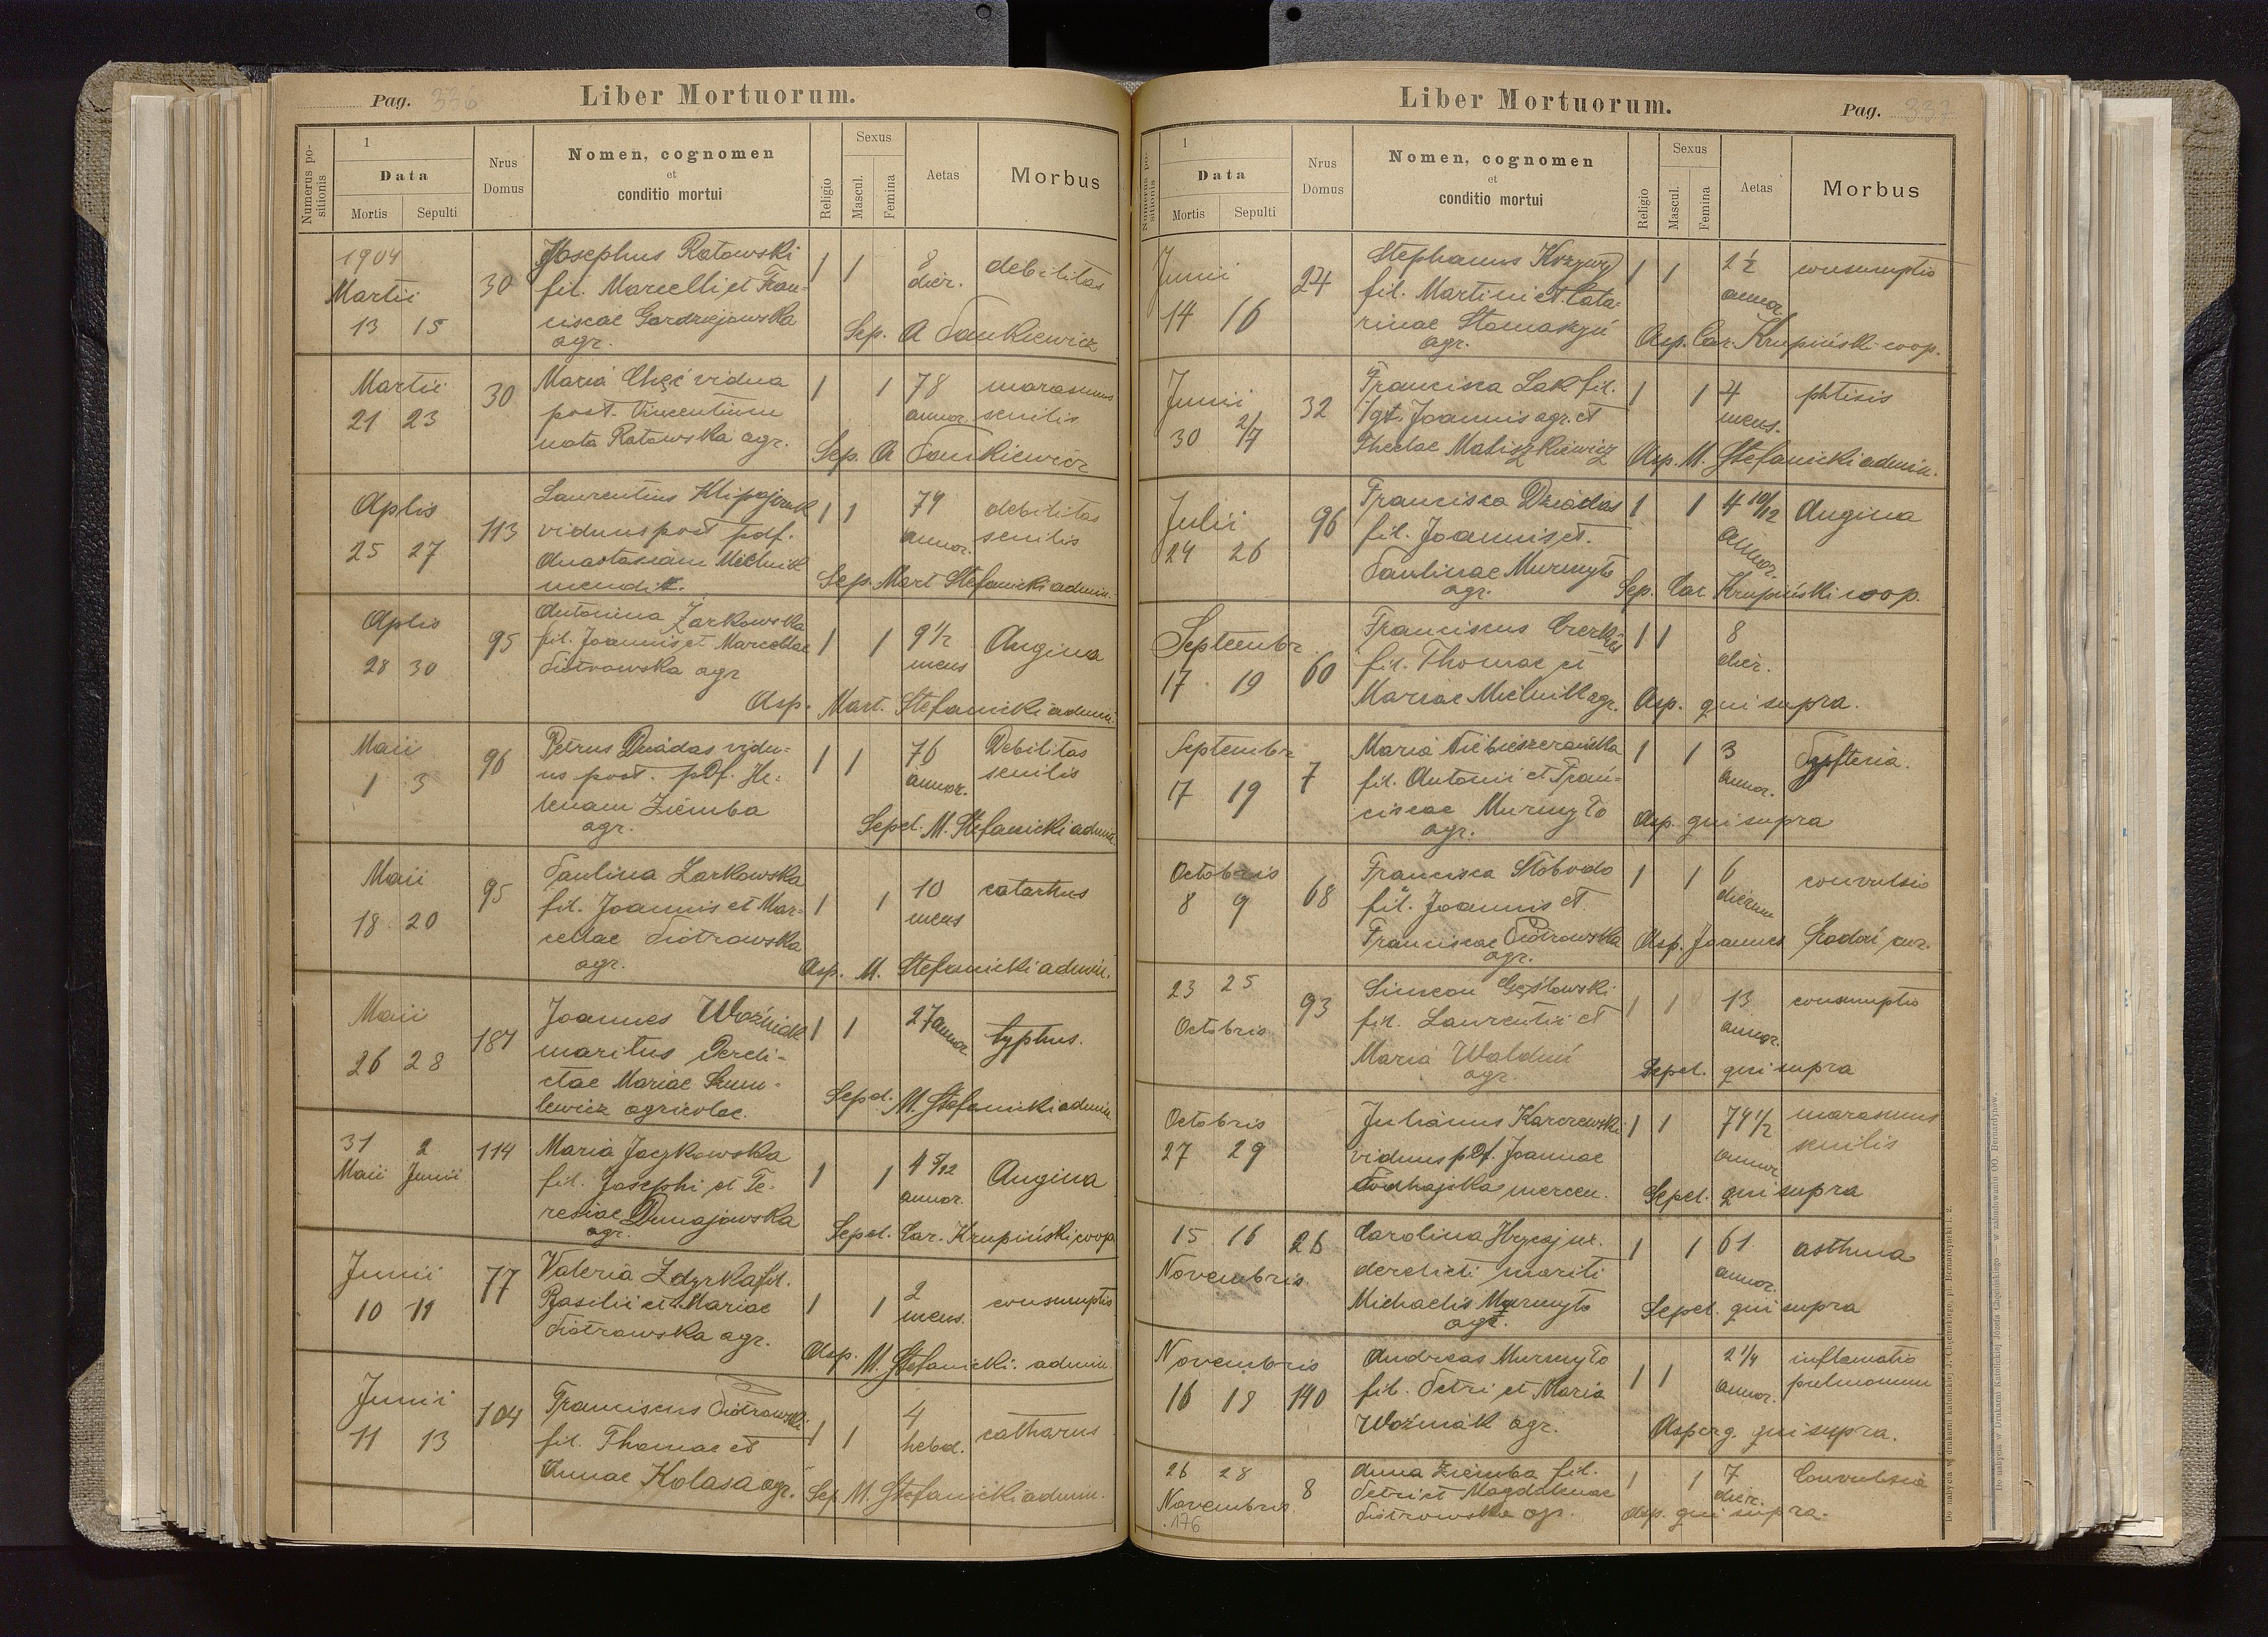 Pag. 336
Liber Mortuorum.
Numerus positionis
1
Data
Mortis Sepulti
Nrus Domus
Nomen, cognomen
et
conditio mortui
Religio
Sexus
Mascul. Femina
Aetas
Morbus
1904
Martii
13 15
30
Josephus Rotowski
fil. Marcelli et Fran-
ciscae Gordziejowska
agr.
1 1
8
dier.
debilitas
Sep. A Pankiewicz
Martii
21 23
30
Maria Chęć vidua
post. Vincentium
nata Rotowska agr.
1 1
78
annor.
marasmus
senilis
Sep. A Pankiewicz
Aplis
25 27
113
Laurentius Klipajczuk
viduus post pdf.
Anastasiam Mielnik
mendik.
1 1
79
annor.
debilitas
senilis
Sep. Mart Stefanicki admin.
Aplis
28 30
95
Antonina Żarkowska
fil. Joannis et Marcellae
Piotrowska agr
1 1
9 1/2
mens
Angina
Asp. Mart. Stefanicki admin.
Maii
1 3
96
Petrus Dziadas vidu-
us post. pdf. He-
lenam Ziemba
agr.
1 1
76
annor.
Debilitas
senilis
Sepel. M. Stefanicki admin.
Maii
18 20
95
Paulina Zarkowska
fil. Joannis et Mar-
cellae Piotrowska
agr.
1 1
10
mens
catarhus
Asp. M. Stefanicki admin.
Maii
26 28
187
Joannes Woźniak
maritus Dereli-
ctae Mariae Szum-
lewicz agricolae.
1 1
27 annor.
typhus.
Sepel. M. Stefanicki admin.
31 2
Maii Junii
114
Maria Jaczkowska
fil. Josephi et Te-
resiae Dunajowska
agr.
1 1
4 5/12
annor.
Angina
Sepel. Car. Krupiński coop.
Junii
10 11
77
Valeria Zdyrka fil.
Basilii et Mariae
Piotrowska agr.
1 1
2
mens.
consumptio
Asp. M. Stefanicki. admin.
Junii
11 13
104
Franciscus Piotrowski
fil. Thomae et
Annae Kolasa agr.
1 1
4
hebd.
catharus
Sep M. Stefanicki admin.
Liber Mortuorum.
Pag. 337
Numerus positionis
1
Data
Mortis Sepulti
Nrus Domus
Nomen, cognomen
et
conditio mortui
Religio
Sexus
Mascul. Femina
Aetas
Morbus
Junii
14 16
24
Stephanus Krzywy
fil. Martini et Cata-
rinae Stomaszyń
agr.
1 1
2 1/2
annor
consumptio
Asp. Car. Krupiński coop.
Junii
30 2/7
32
Francisca Lak fil.
Joannis agr. et
Theclae Matiszkiewicz
1 1
4
mens.
phtisis
Asp. M. Stefanicki admin.
Julii
24 26
96
Francisca Dziadas
fil. Joannis et.
Paulinae Murmyło
agr.
1 1
4 10/12
annor.
Angina
Sep. Car. Krupiński coop.
Septembr.
17 19
60
Franciscus
fil. Thomae et
Mariae Mielnik agr.
1 1
8
dier.
Asp. qui supra.
Septembr
17 19
7
Maria Niebieszczańska
fil. Antonii et Fran-
ciscae Murmyło
agr.
1 1
3
annor.
Dyfteria.
Asp. qui supra
Octobris
8 9
68
Francisca Słobodo
fil. Joannis et
Franciscae Piotrowska
agr.
1 1
6
dierum
convulsio
Asp. Joannes Radoń cur.
23 25
Octobris
93
Simeon Gęsłowski
fil. Laurentii et
Maria Walduń
agr.
1 1
13
annor.
consumptio
Sepel. qui supra
Octobris
27 29
Julianus Karczewski
viduus pdf. Joannae
Podhajska mercen.
1 1
74 1/2
annor
marasmus
senilis
Sepel. qui supra
15 16
Novembris.
26
Carolina Hrycaj ux.
derelicti mariti
Michaelis Murmyło
agr.
1 1
61
annor.
asthma
Sepel. qui supra
Novembris
16 18
140
Andreas Murmyło
fil. Petri et Maria
Woźniak agr.
1 1
2 1/4
annor.
inflamatio
pulmonum
Asperg. qui supra.
26 28
Novembris.
8
Anna Ziemba fil.
Petri et Magdalenae
Piotrowska agr.
1 1
7
dier.
Convulsio
Asp. qui supra.
176